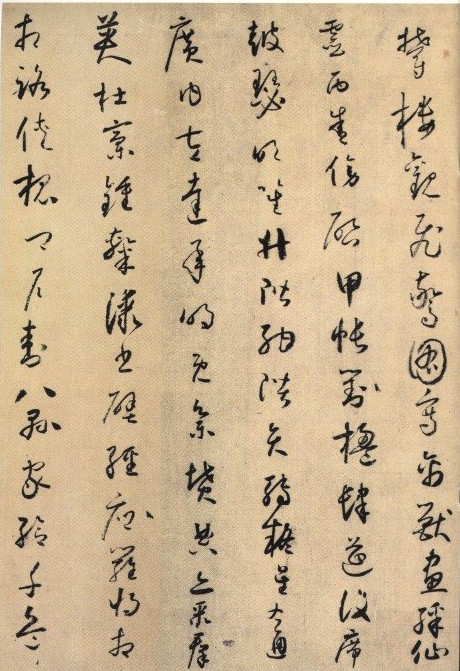 鬱樓觀飛驚圖寫禽獸畫綵仙
靈丙舍傍啓甲帳對楹肆筵設席
鼓瑟吹笙升階納陛弁轉疑星右通
廣內左達承明既集墳典亦聚群
英杜稾鍾隸漆書壁經府羅將相
相路俠槐卿戶封八縣家給千兵